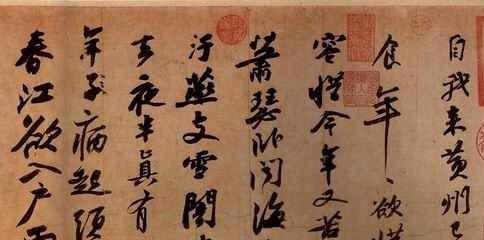 自我來黃州已
食年〻欲惜
容惜今年又苦
蕭瑟卧聞海
汙燕支雪闇
去夜半真有
年子病起頭
春江欲入户雨